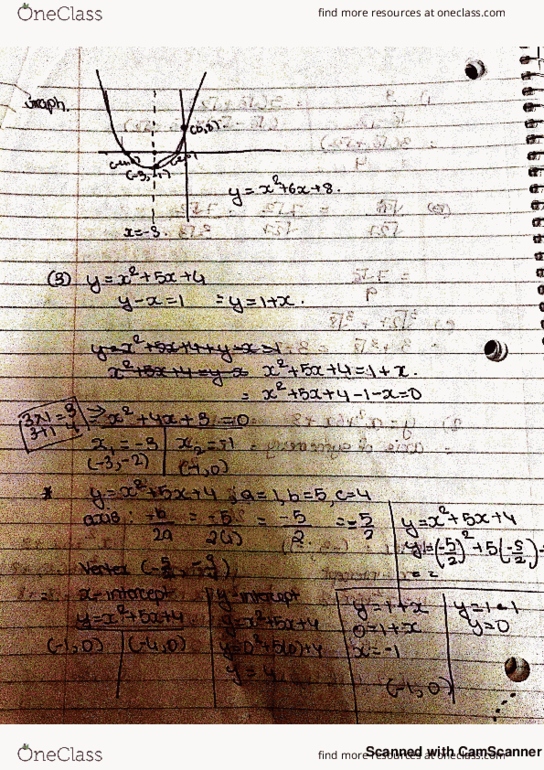 OneClass
find more resources at oneclass.com
Graph.
(-3,-1)
y = x²+6x+8.
x=-3
(3) y = x²+5x+4
y-x=1 = y=1+x.
y=x²+5x+4+y-x=1
x²+5x+4=y-x x²+5x+4=1+x.
= x²+5x+4-1-x=0
3×1=3
3+1=4
⇒ = x²+4x+3=0
x₁=-3 x₂=-1
(-3,-2) (-1,0)
* y=x²+5x+4, a=1, b=5, c=4
aos: -b/2a = -5/2(1) = -5/2 = -5/2
y=x²+5x+4
y=(-5/2)²+5(-5/2)
Vertex
x-intercept
y=x²+5x+4
(-1,0) (-4,0)
y-intercept
y=x²+5x+4
y=0²+5(0)+4
y=4
y=1+x
0=1+x
x=-1
y=1-1
y=0
(-1,0)
OneClass
find more resources at oneclass.com
Scanned with CamScanner